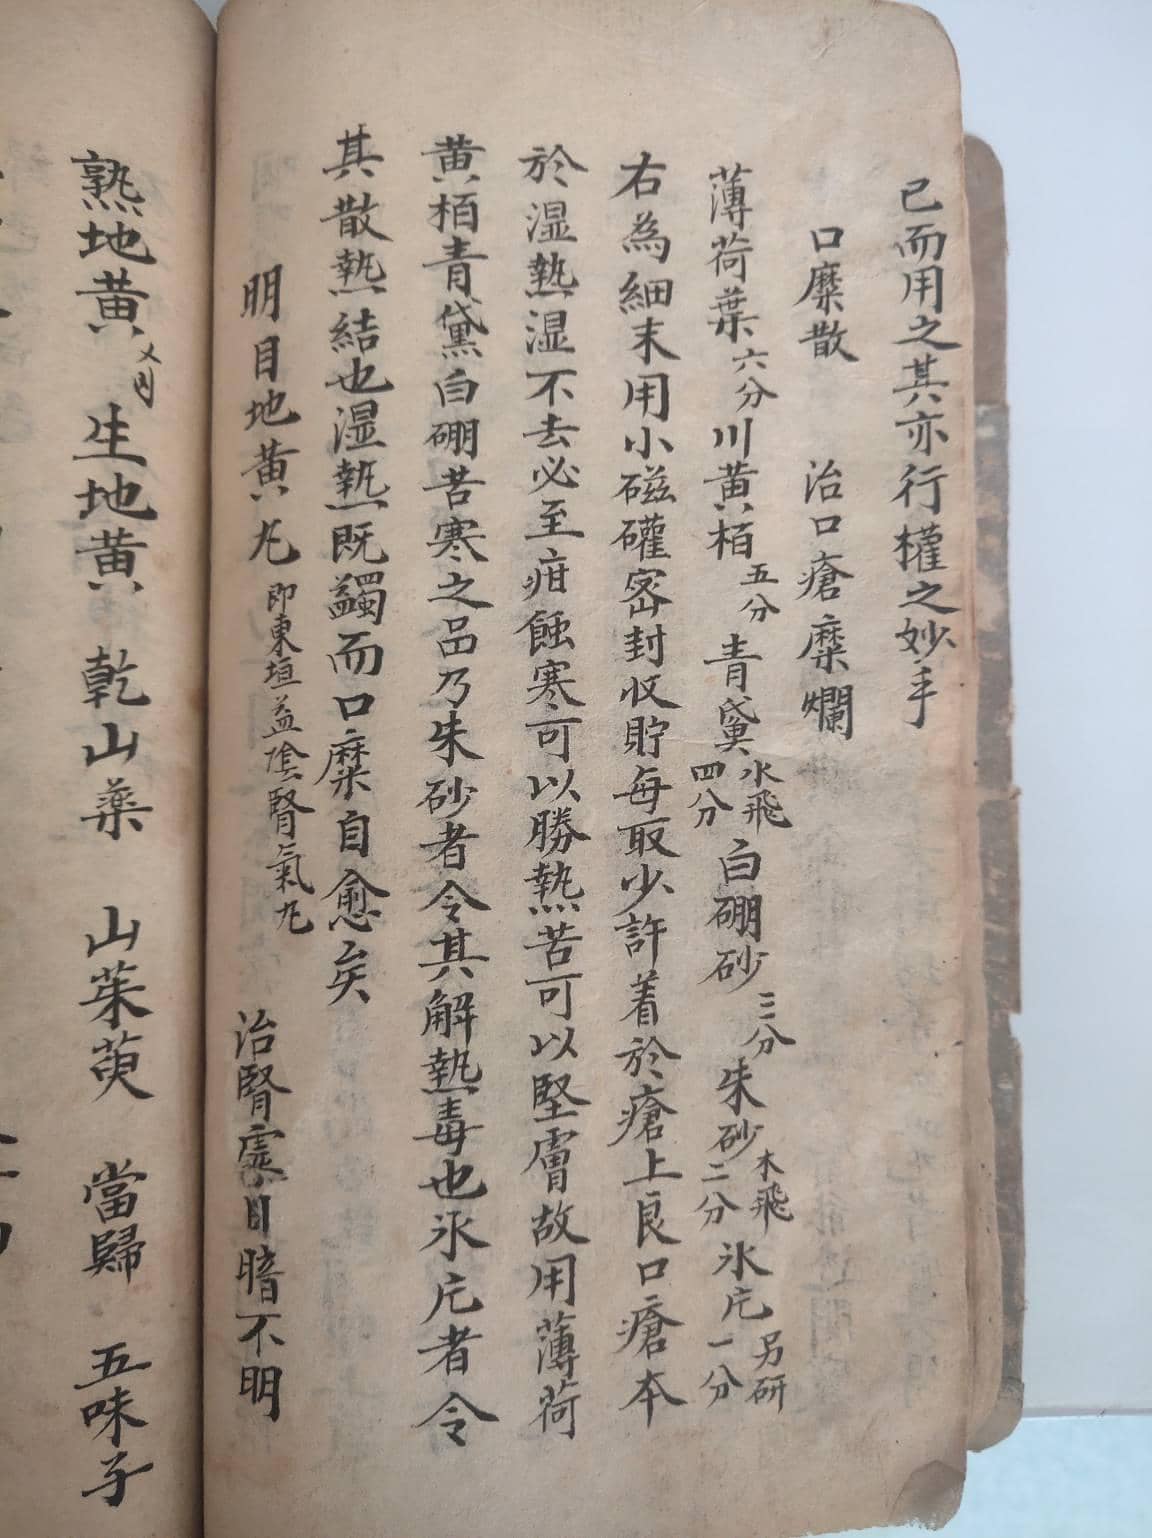 已而用之其亦行權之妙手
口糜散 治口瘡糜爛
薄荷葉六分川黄栢五分青黛水飛四分白硼砂三分朱砂水飛二分氷片另研一分
右為細末用小磁礶密封收貯每取少許着於瘡上良口瘡本
於湿熱湿不去必至疳蝕寒可以勝熱苦可以堅膚故用薄荷
黄栢青黛白硼苦寒之品乃朱砂者令其解熱毒也氷片者令
其散熱結也湿熱既蠲而口糜自愈矣
明目地黄丸即東垣益陰腎氣丸 治腎虚目暗不明
熟地黄 生地黄 乾山薬 山茱萸 當歸 五味子